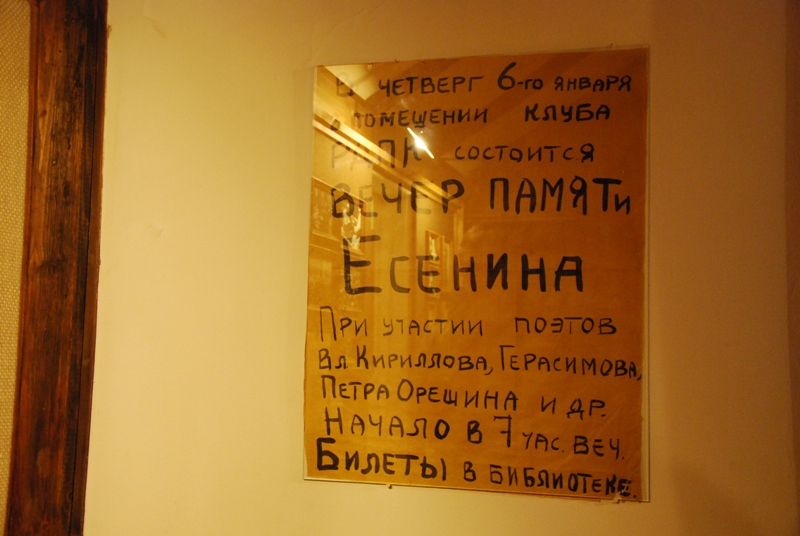 В ЧЕТВЕРГ 6-го ЯНВАРЯ
в ПОМЕЩЕНИИ КЛУБА
РАПК СОСТОИТСЯ
ВЕЧЕР ПАМЯТИ
ЕСЕНИНА
ПРИ УЧАСТИИ ПОЭТОВ
Вл КИРИЛЛОВА, ГЕРАСИМОВА,
ПЕТРА ОРЕШИНА И ДР.
НАЧАЛО В 7 ЧАС. ВЕЧ.
БИЛЕТЫ В БИБЛИОТЕКЕ.